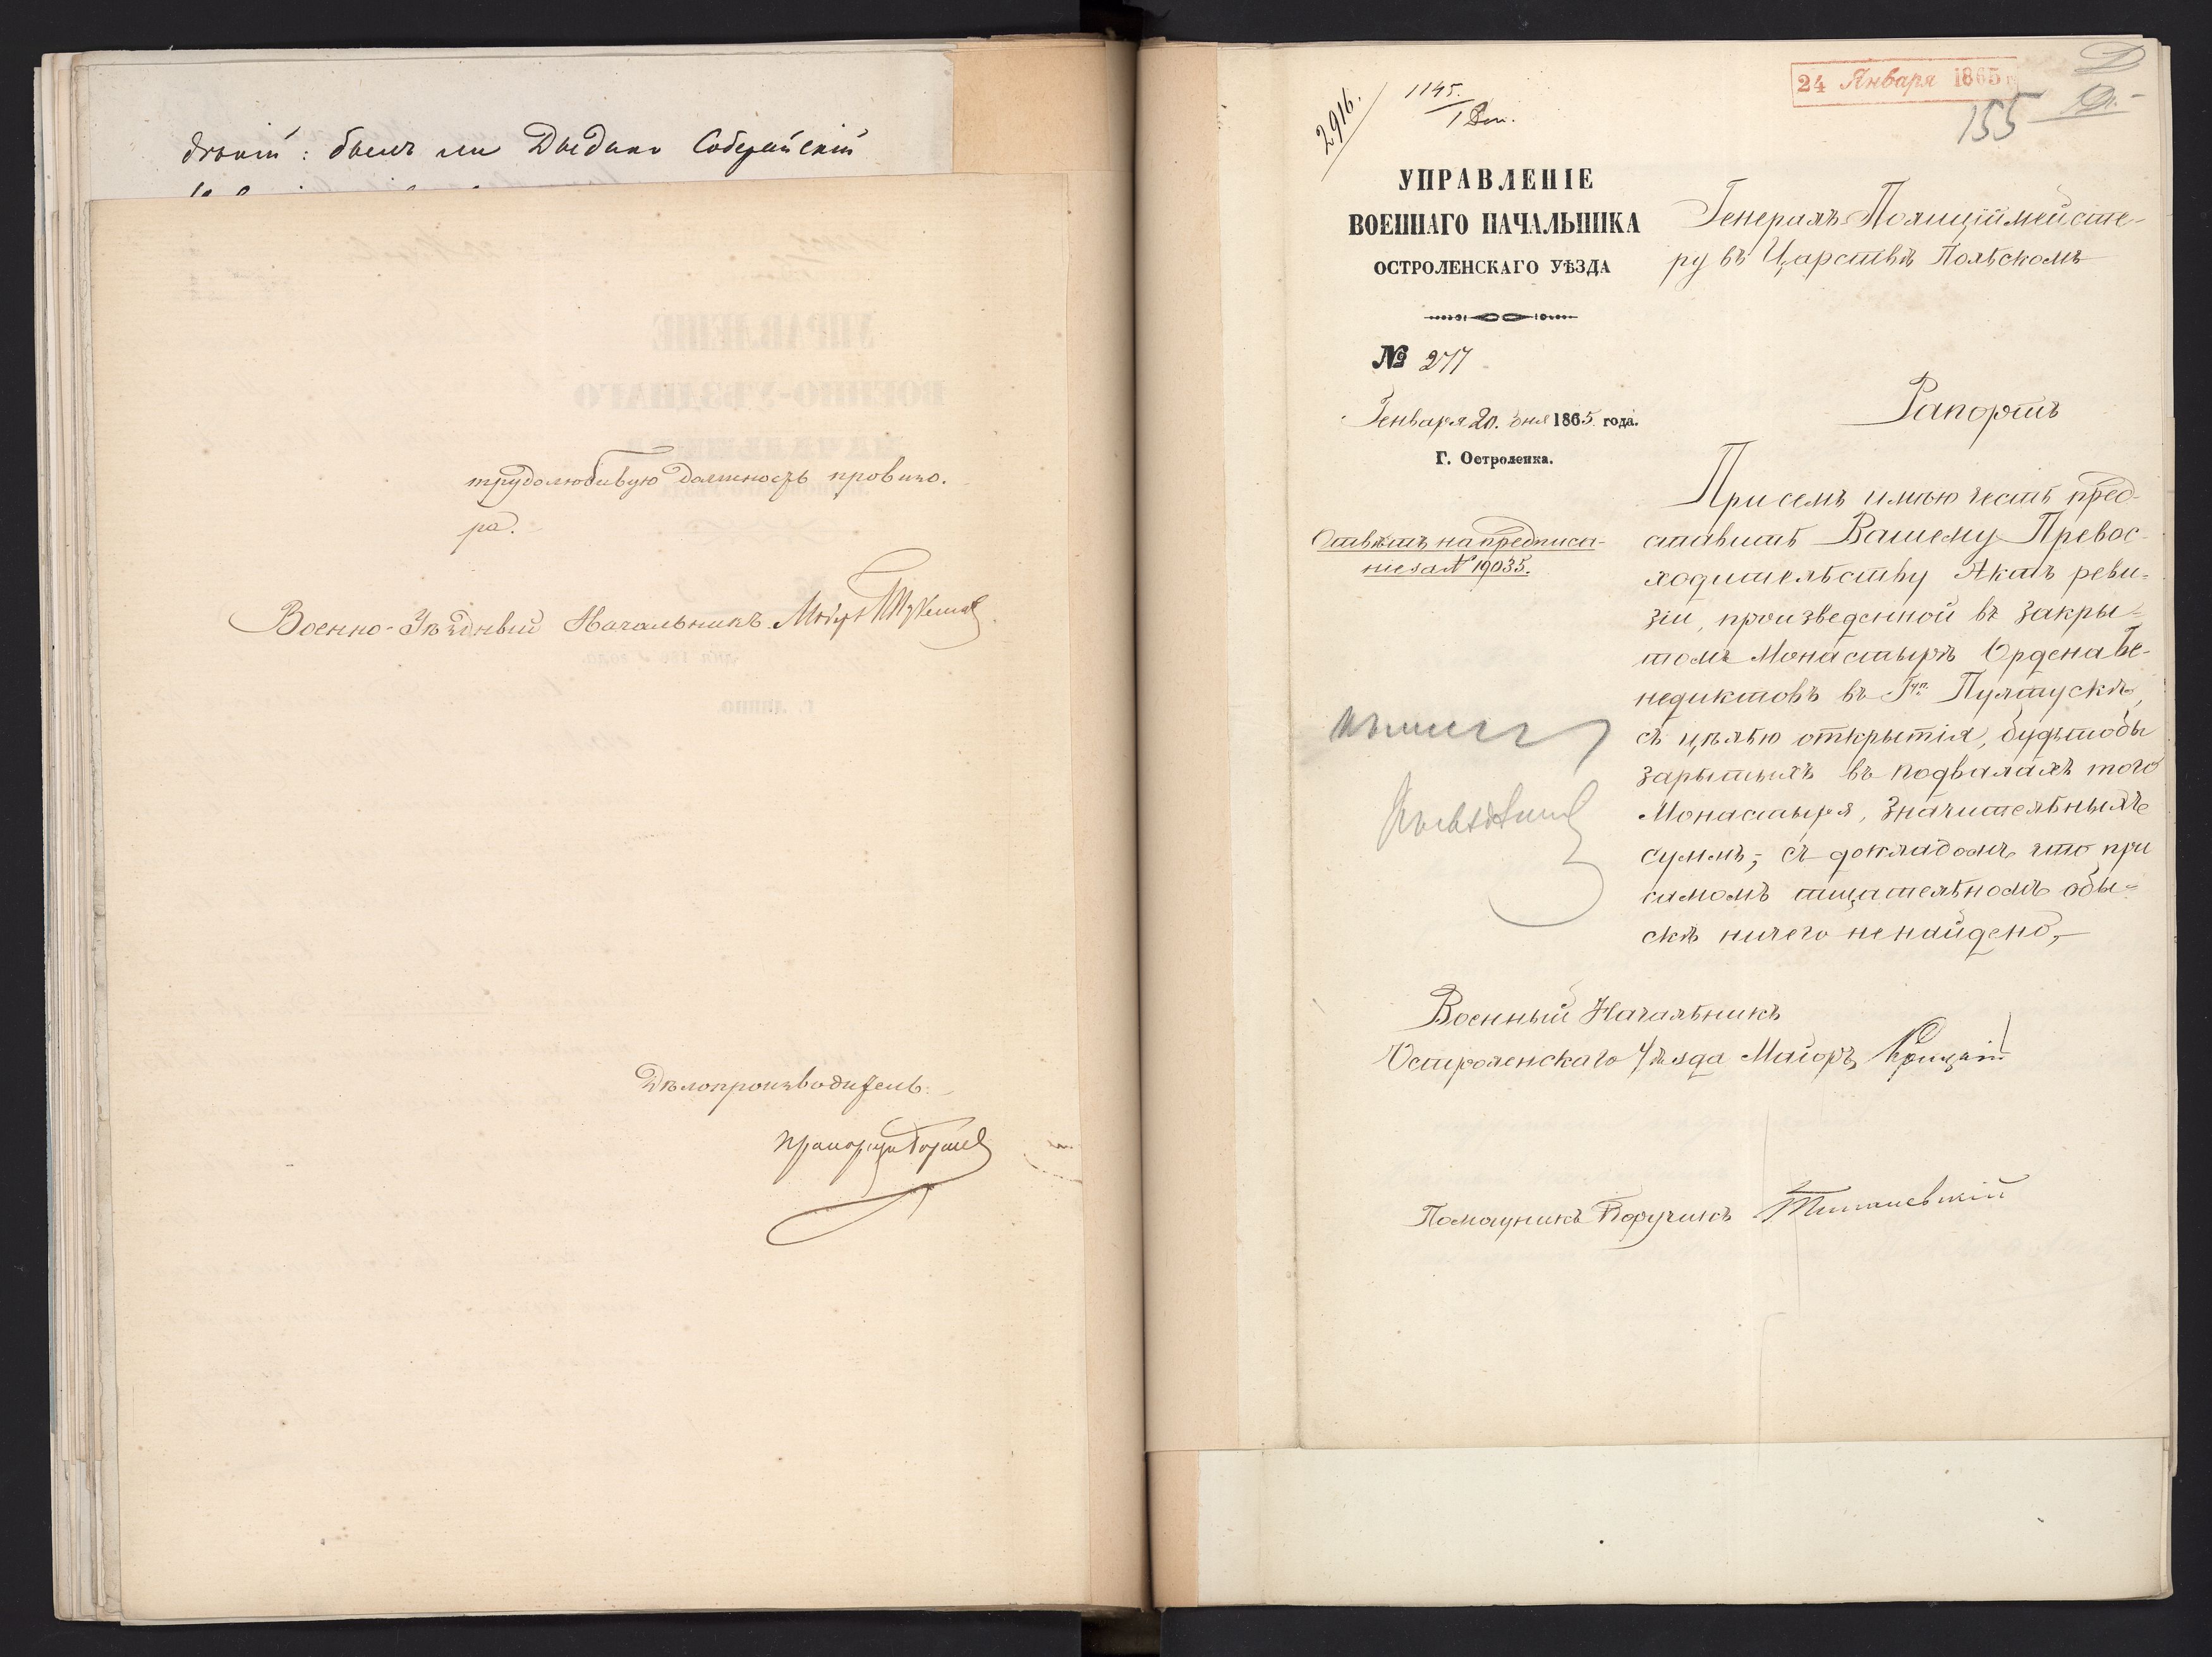 былъ ли
трудолюбивую должность провизо-
ра.
Военно-Уѣздный Начальникъ Маіоръ
Дѣлопроизводитель
Прапорщикъ
24 Января 1865 г.
155
2916.
1145.
УПРАВЛЕНІЕ
ВОЕННАГО НАЧАЛЬНИКА
ОСТРОЛЕНСКАГО УѢЗДА
№ 277
Генваря 20. дня 1865 года.
Г. Остроленка.
Отвѣтъ на предписа-
ніе за № 19035.
Генералъ-Полиціймейсте-
ру въ Царствѣ Польскомъ
Рапортъ
При семъ имѣю честь пред-
ставить Вашему Превос-
ходительству Актъ реви-
зіи, произведенной въ закры-
томъ Монастырѣ Ордена Бе-
недиктовъ въ Гор. Пултускѣ,
съ цѣлью открытія, будьтобы
зарытыхъ въ подвалахъ того
Монастыря, значительныхъ
суммъ; съ докладомъ что при
самомъ тщательномъ обы-
скѣ ничего ненайдено,
Военный Начальникъ
Остроленскаго Уѣзда Маіоръ
Помощникъ Поручикъ